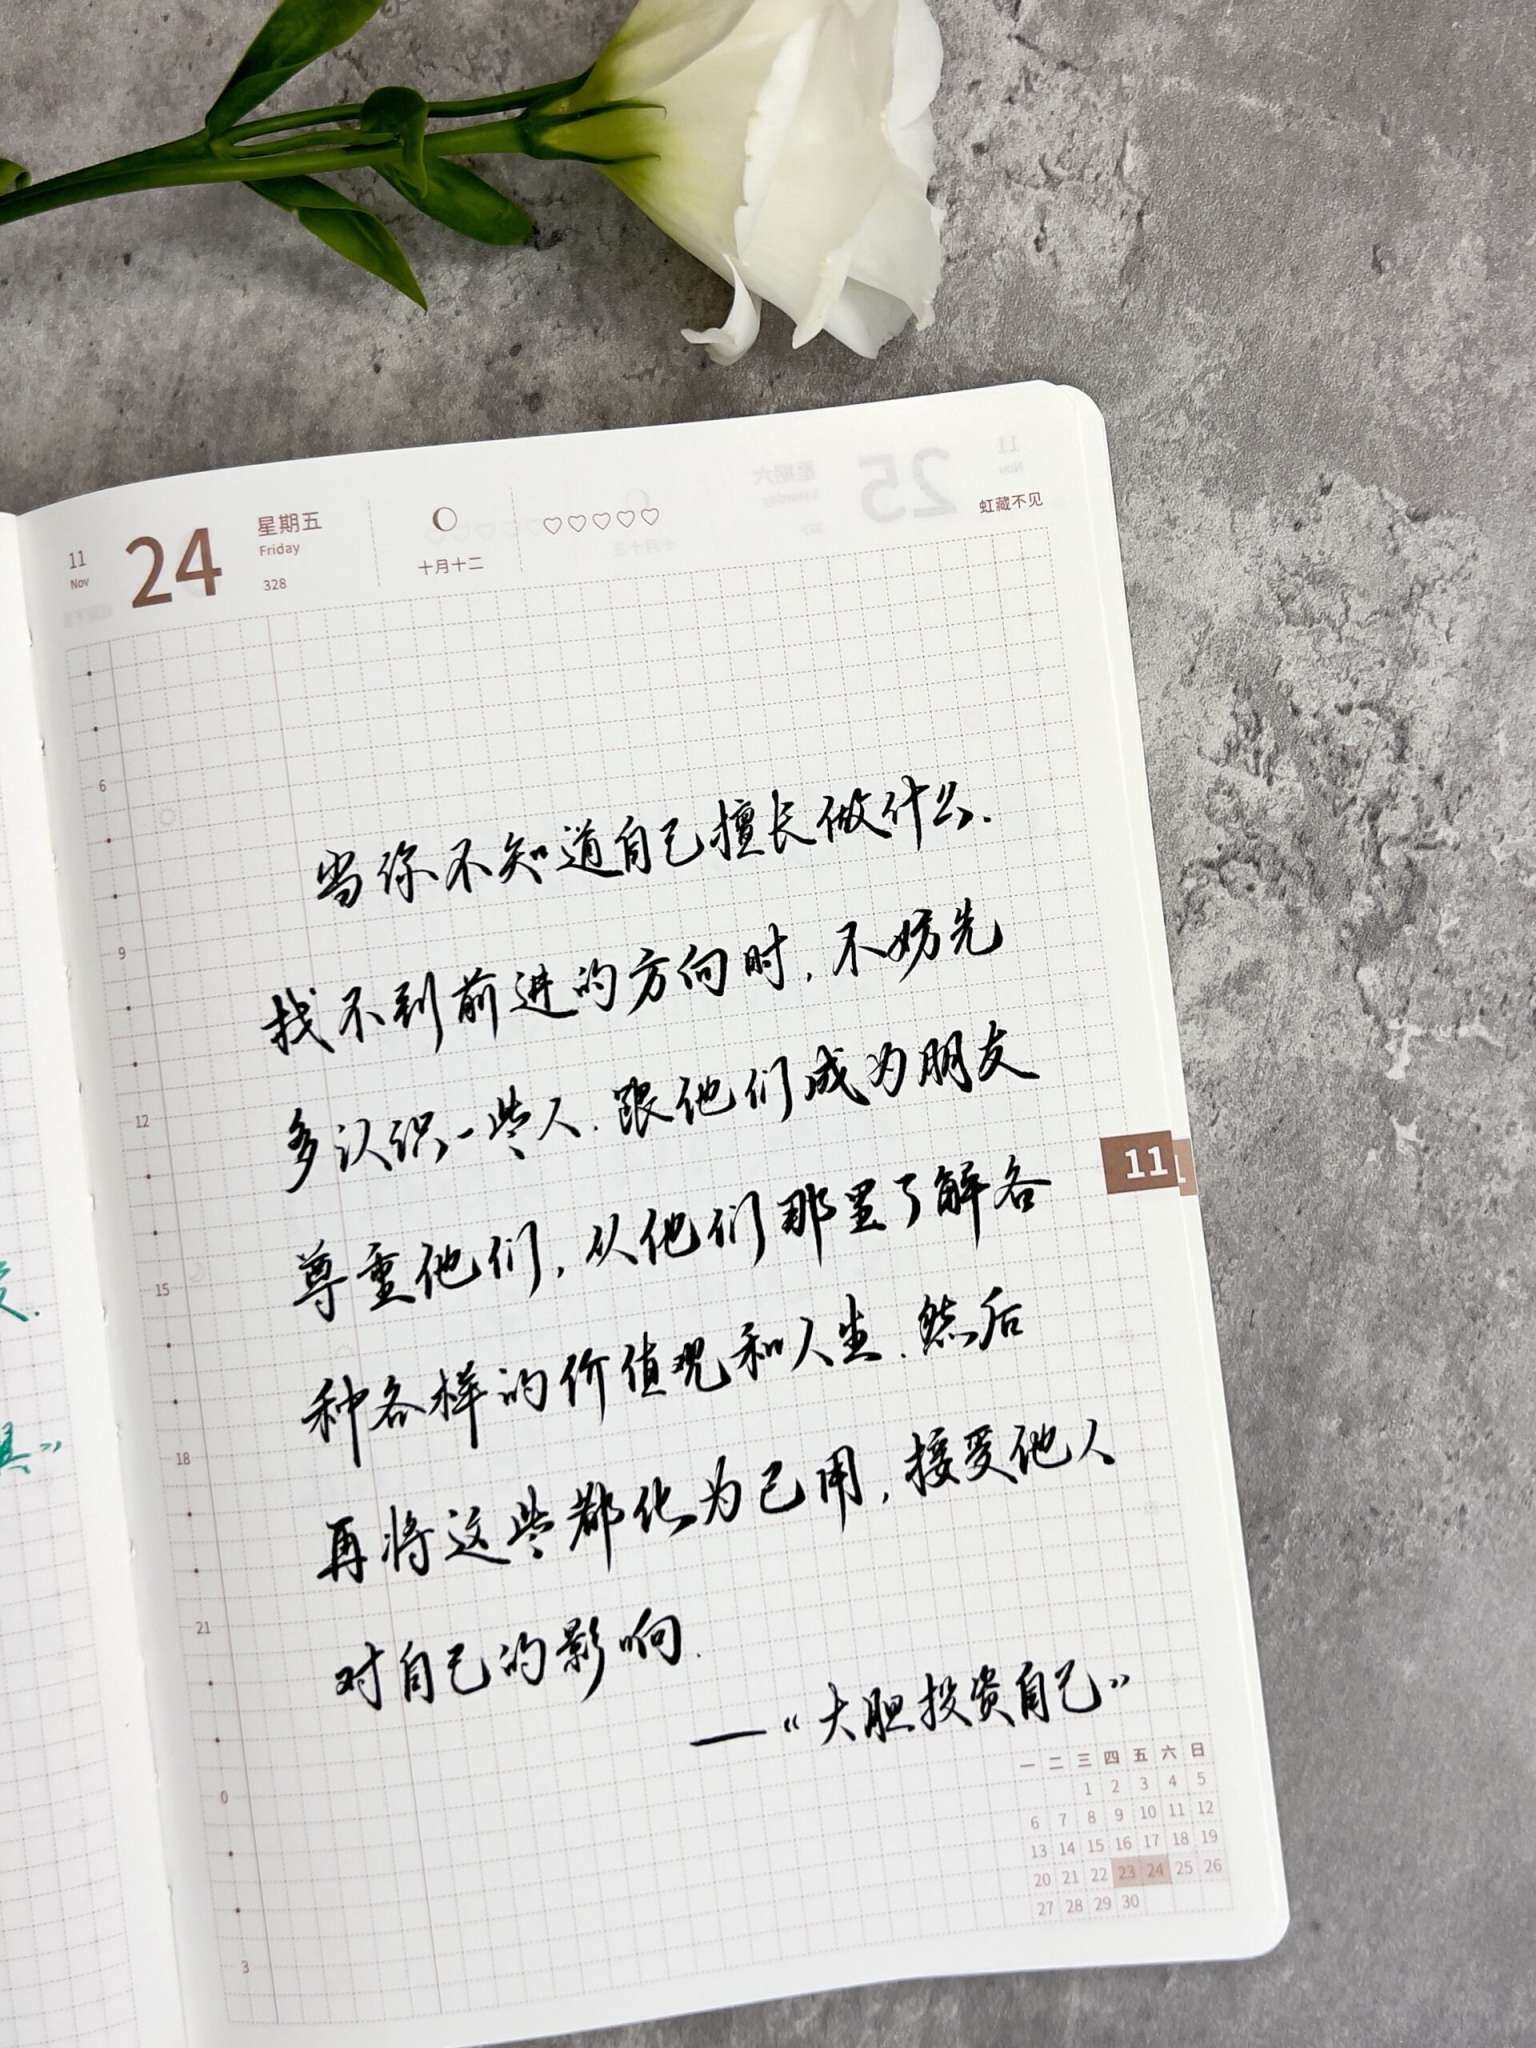 11
Nov
24
星期五
Friday
328
十月十二
虹藏不见
6
当你不知道自己擅长做什么.
9
找不到前进的方向时, 不妨先
12
多认识一些人. 跟他们成为朋友
11
尊重他们, 从他们那里了解各
15
种各样的价值观和人生. 然后
18
再将这些都化为己用, 接受他人
21
对自己的影响.
——《大胆投资自己》
0
3
一 二 三 四 五 六 日
1 2 3 4 5
6 7 8 9 10 11 12
13 14 15 16 17 18 19
20 21 22 23 24 25 26
27 28 29 30